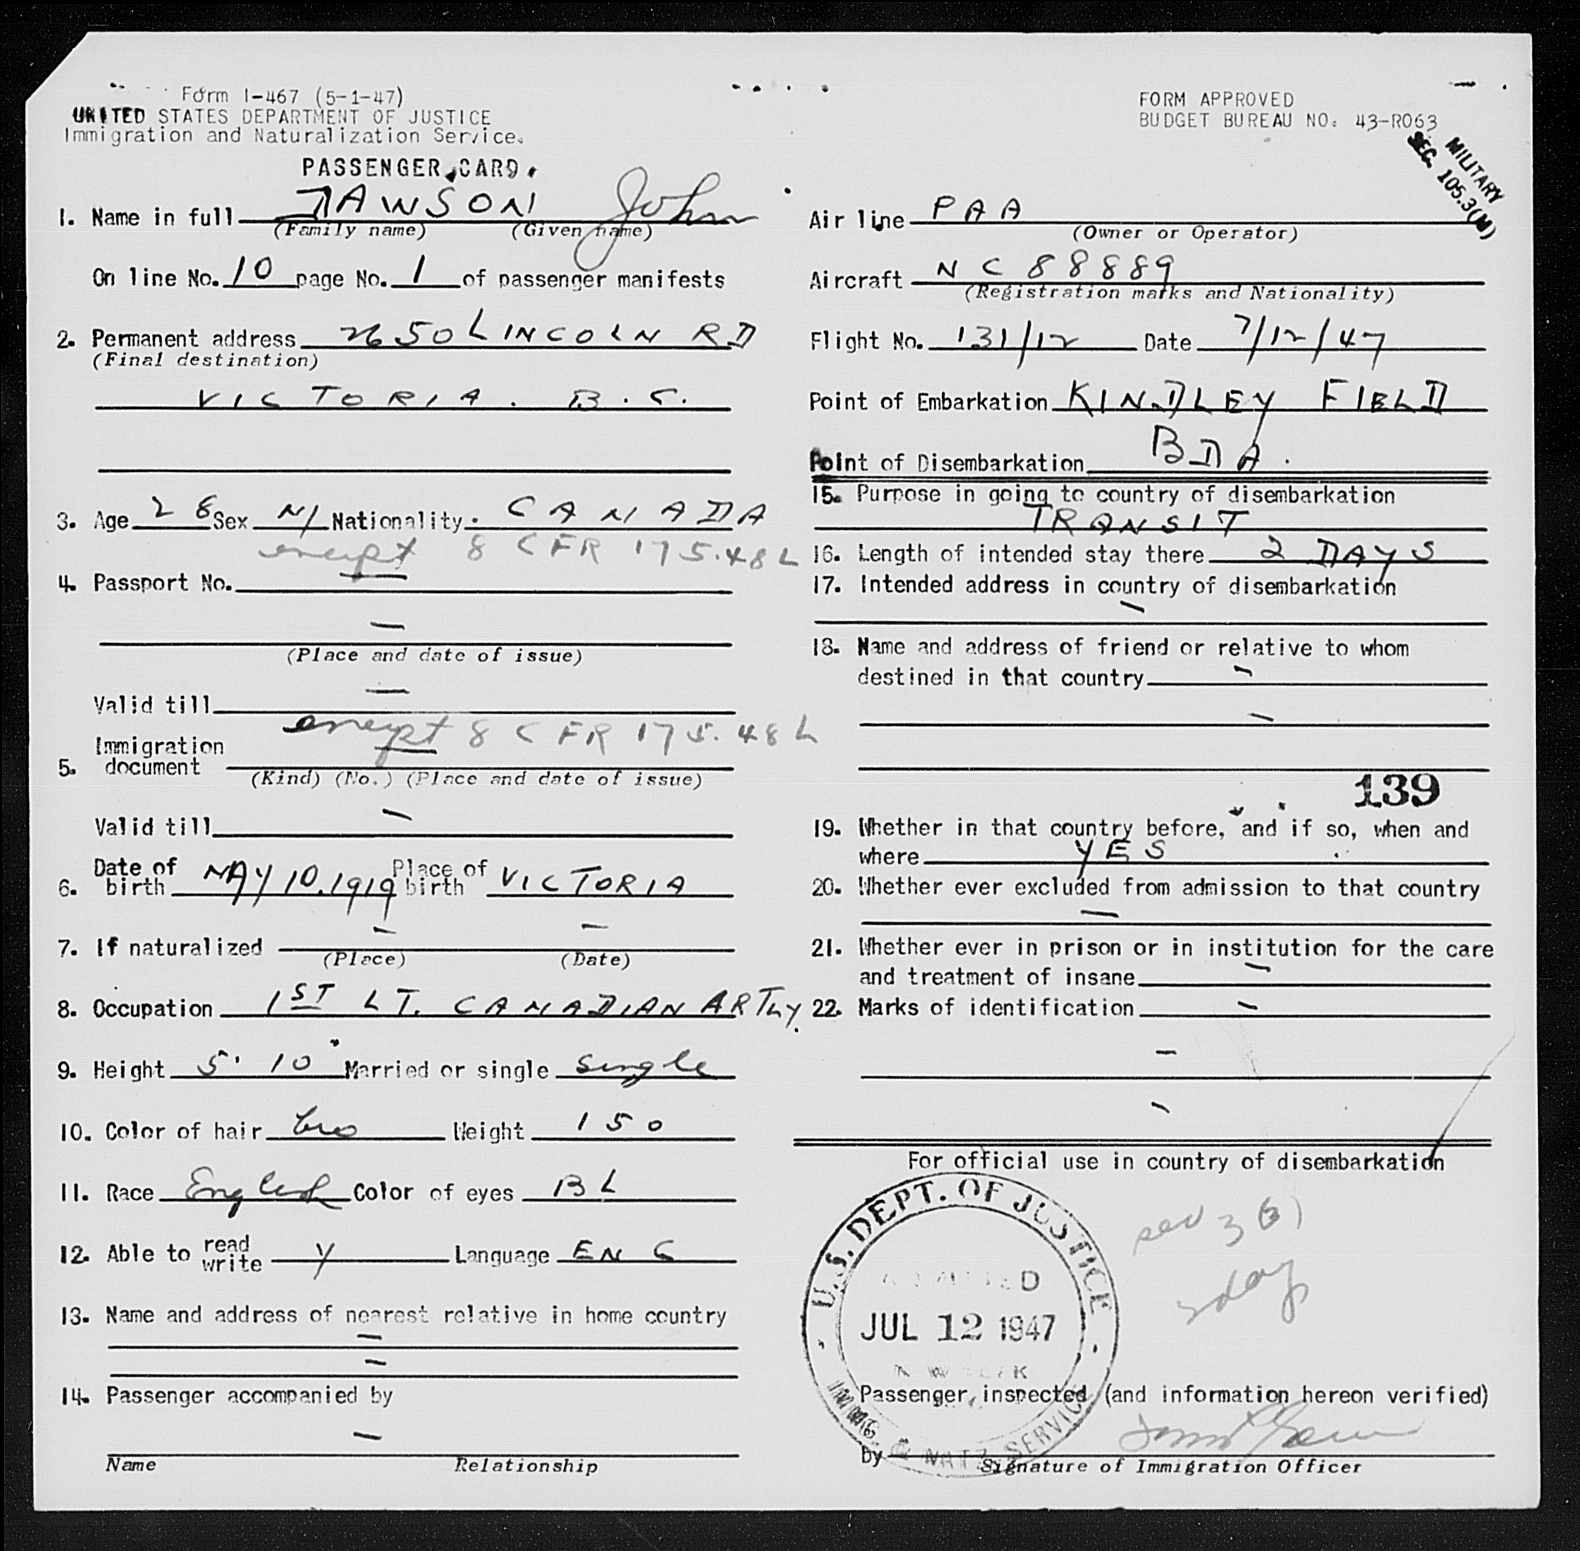 Form I-467 (5-1-47)
UNITED STATES DEPARTMENT OF JUSTICE
Immigration and Naturalization Service.
PASSENGER CARD
FORM APPROVED
BUDGET BUREAU NO. 43-R063
MILITARY
SEC. 105.3(M)
1. Name in full DAWSON John
(Family name) (Given name)
On line No. 10 page No. 1 of passenger manifests
2. Permanent address 2650 LINCOLN RD
(Final destination)
VICTORIA. B.C.
3. Age 28 Sex M Nationality CANADA
exempt 8 CFR 175.48L
4. Passport No. —
—
(Place and date of issue)
Valid till —
exempt 8 CFR 175.48L
5. Immigration document —
(Kind) (No.) (Place and date of issue)
Valid till —
6. Date of birth MAY 10, 1919 Place of birth VICTORIA
7. If naturalized — —
(Place) (Date)
8. Occupation 1ST LT. CANADIAN ARTLY.
9. Height 5' 10" Married or single Single
10. Color of hair bro Weight 150
11. Race English Color of eyes BL
12. Able to read write Y Language ENG
13. Name and address of nearest relative in home country
—
—
14. Passenger accompanied by
—
Name Relationship
Air line PAA
(Owner or Operator)
Aircraft NC 88889
(Registration marks and Nationality)
Flight No. 131/12 Date 7/12/47
Point of Embarkation KINDLEY FIELD
BDA.
Point of Disembarkation
15. Purpose in going to country of disembarkation
TRANSIT
16. Length of intended stay there 2 DAYS
17. Intended address in country of disembarkation
—
18. Name and address of friend or relative to whom
destined in that country —
—
139
19. Whether in that country before, and if so, when and
where YES
20. Whether ever excluded from admission to that country
—
21. Whether ever in prison or in institution for the care
and treatment of insane —
22. Marks of identification —
—
—
For official use in country of disembarkation
U.S. DEPT. OF JUSTICE
ADMITTED
JUL 12 1947
IMMIG. & NATZ. SERVICE
3(3)
Passenger inspected (and information hereon verified)
By
Signature of Immigration Officer